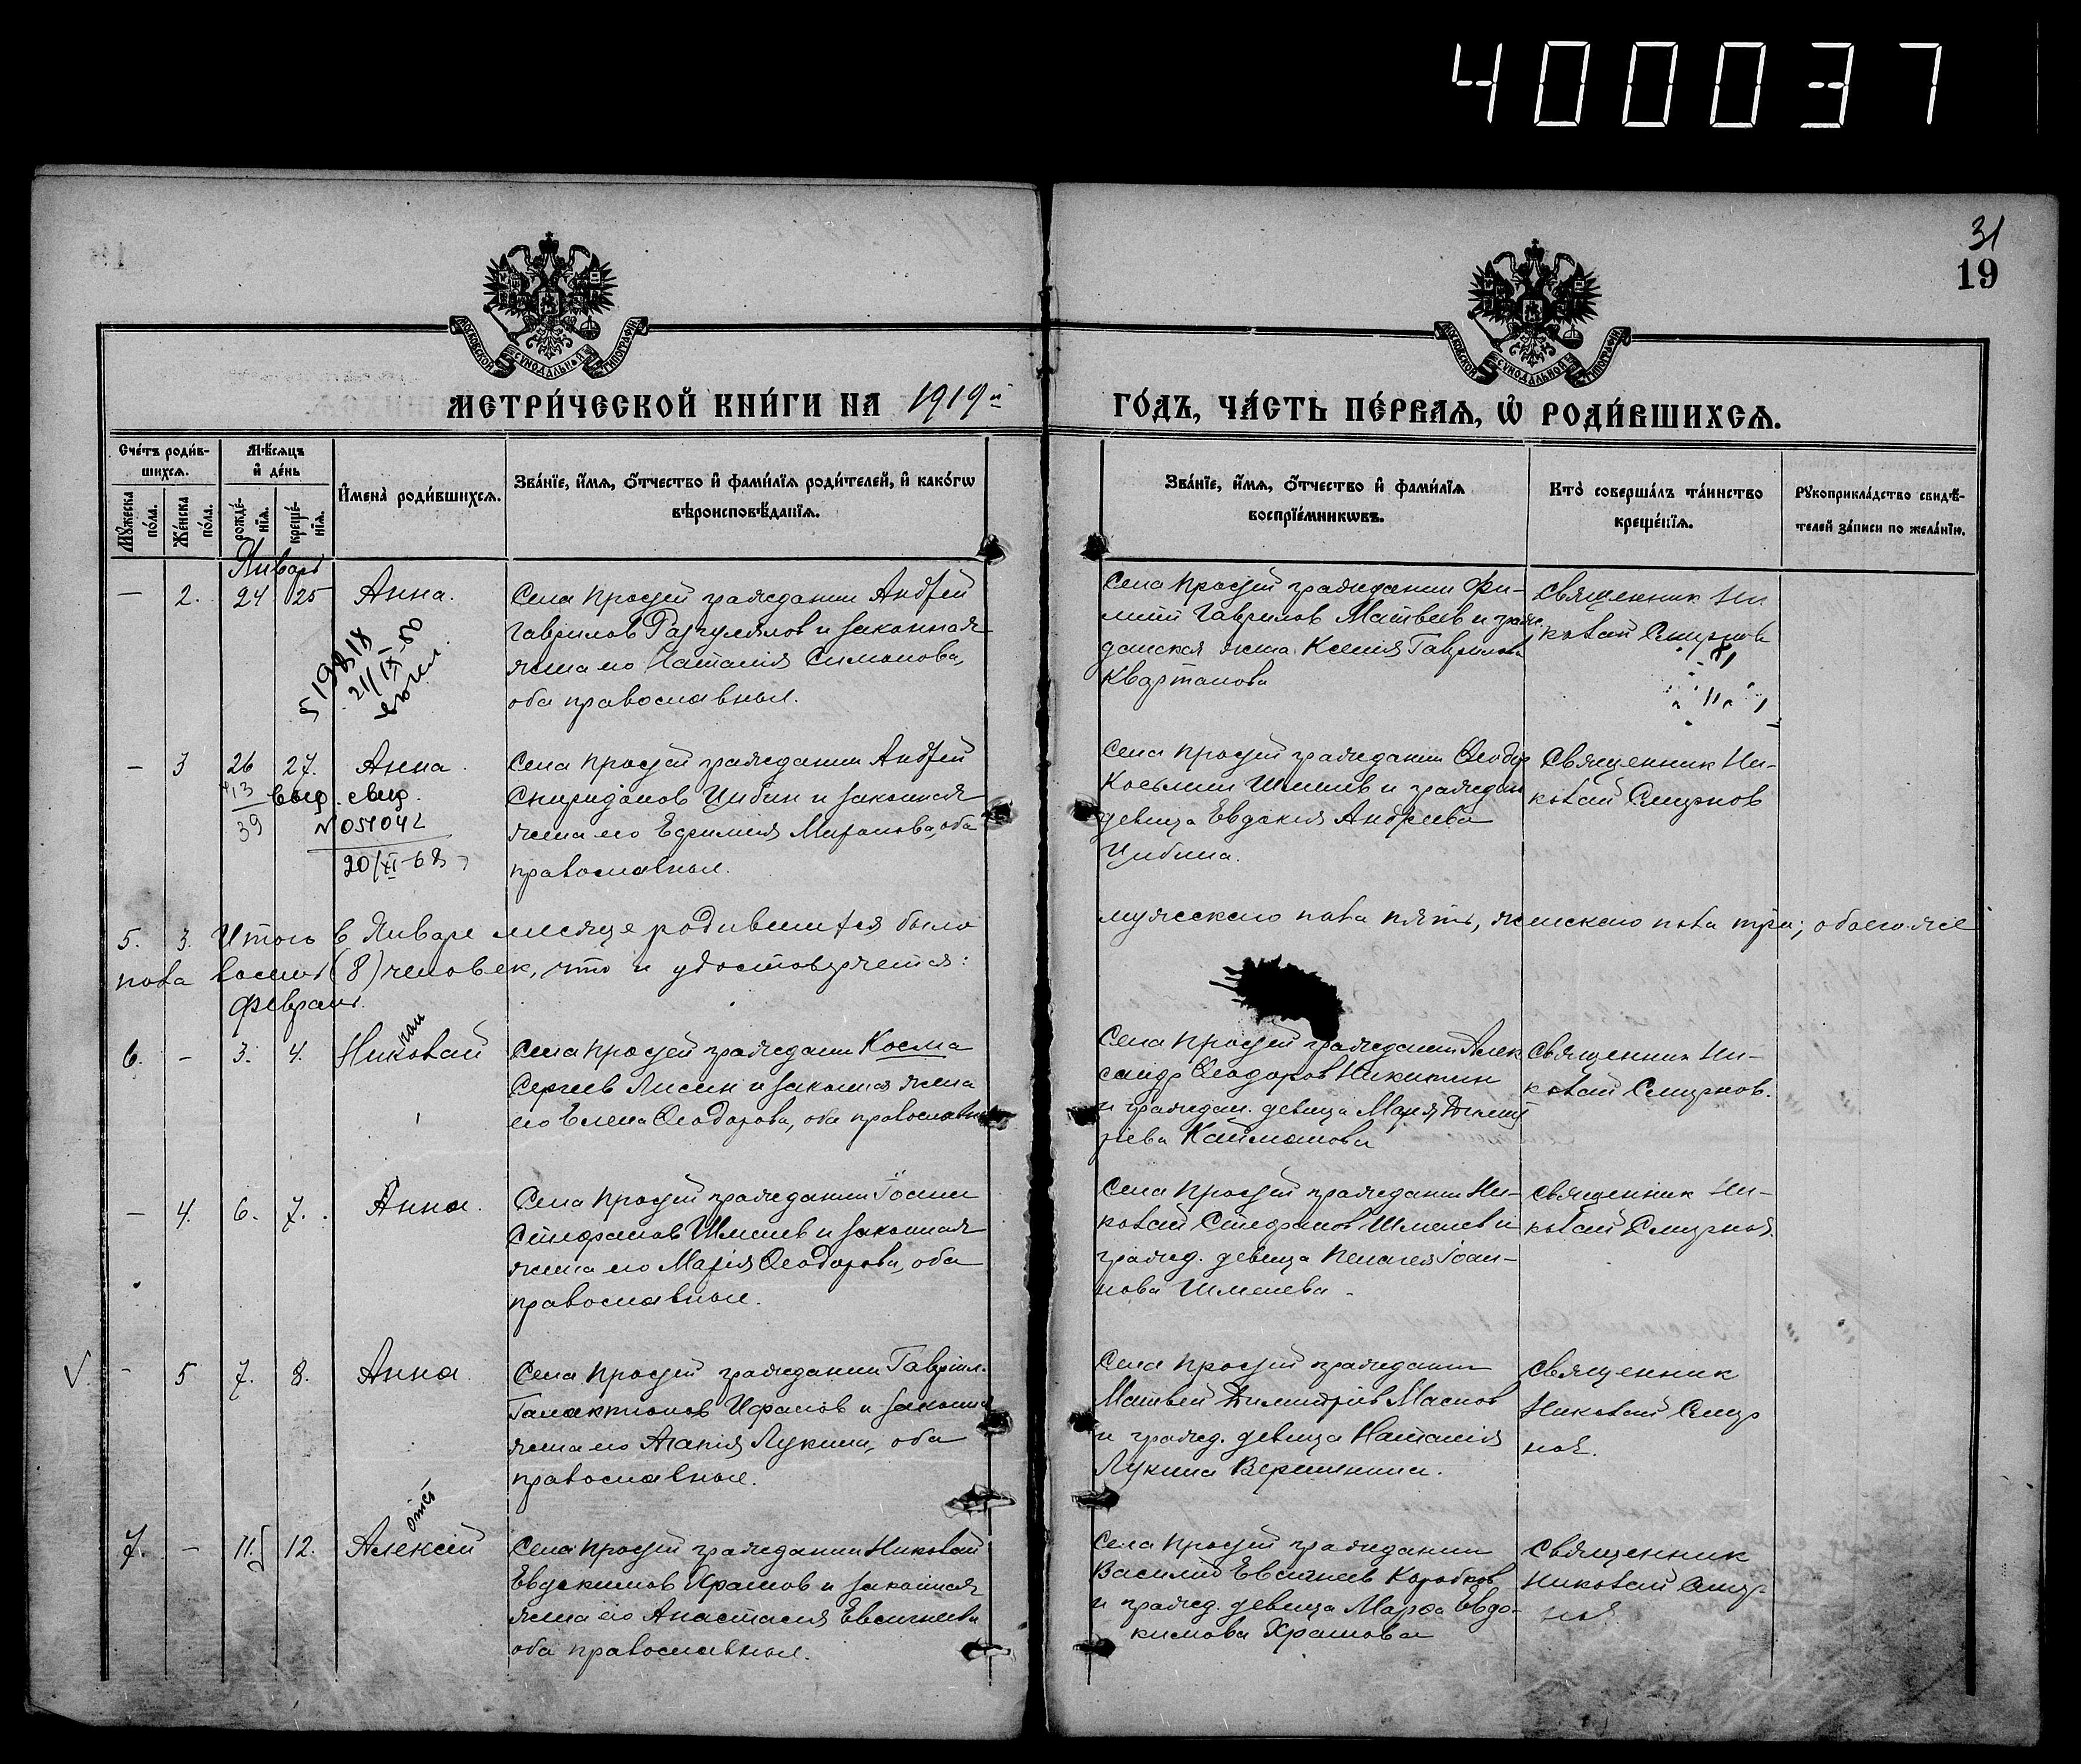 400037
31
19
МОСКОВСКОЙ СѴНОДАЛЬНОЙ ТИПОГРАФІИ
МОСКОВСКОЙ СѴНОДАЛЬНОЙ ТИПОГРАФІИ
МЕТРИ́ЧЕСКОЙ КНИ́ГИ НА 1919й ГО́ДЪ, ЧА́СТЬ ПЕ́РВАѦ, Ѡ РОДИ́ВШИХСѦ.
Сче́тъ роди́в-
шихсѧ.
Мꙋжеска по́ла.
Же́нска по́ла.
Мѣ́сѧцъ
и де́нь
рожде́-
нїѧ.
креще́-
нїѧ.
Имена̀ роди́вшихсѧ.
Зва́нїе, и́мѧ, ѻ҆́тчество и фами́лїѧ роди́телей, и како́гѡ
вѣроисповѣ́данїѧ.
Зва́нїе, и́мѧ, ѻ҆́тчество и фами́лїѧ
воспрїе́мникѡвъ.
Кто̀ соверша́лъ та́инство
креще́нїѧ.
Рꙋкоприкла́дство свидѣ́-
телей за́писи по жела́нїю.
Январь
— 2. 24 25 Анна.
Села Просеѝ гражданин Андрей
Гаврилов Разгуляев и законная
жена его Наталія Симонова,
оба православныя.
Села Просеѝ гражданин Фи-
липп Гаврилов Матвеев и граж-
данская жена Ксенія Гаврилова
Квартанова
Священник Ни
колай Смирнов
21/IX-50
— 3 26 27. Анна.
выд. свид.
39
N 051042
20/XI-68
Села Просеѝ гражданин Андрей
Спиридонов Цибин и законная
жена его Евфимія Миронова, оба
православныя.
Села Просеѝ гражданин Ѳеодор
Косьмин Шмелев и граждан
девица Евдокия Андреева
Цибина.
Священник Ни-
колай Смирнов
5. 3. Итого в Январе месяце родившихся было мужескаго пола пять, женскаго пола три; обоего же
пола восемь (8) человек, что и удостоверяется:
Февраль.
6. — 3. 4. Николай
Села Просеѝ гражданин Косма
Сергеев Лисин и законная жена
его Елена Ѳеодорова, оба православны
Села Просеѝ гражданин Алек
сандр Ѳеодоров Никитин
и граждан. девица Марія Димит
ріева Кайманова
Священник Ни-
колай Смирнов.
— 4. 6. 7. Анна.
Села Просеѝ гражданин Іоанн
Стефанов Шмелев и законная
жена его Марія Ѳеодорова, оба
православныя.
Села Просеѝ гражданин Ни-
колай Стефанов Шмелев и
гражд. девица Пелагея Іоан-
нова Шмелева.
Священник Ни-
колай Смирнов.
√ — 5 7. 8. Анна.
Села Просеѝ гражданин Гавріил
Галактионов Ифанов и законная
жена его Агапія Лукина, оба
православныя.
Села Просеѝ гражданин
Матвей Димитріев Маслов
и гражд. девица Наталія
Лукина Вершинина.
Священник
Николай Смир
нов.
7. — 11. 12. Алексей
Села Просеѝ гражданин Николай
Евдокимов Храмов и законная
жена его Анастасия Евсигнеева
оба православныя.
Села Просеѝ гражданин
Василий Евсигнеев Коробков
и гражд. девица Марѳа Евдо-
кимова Храмова
Священник
Николай Смир-
нов